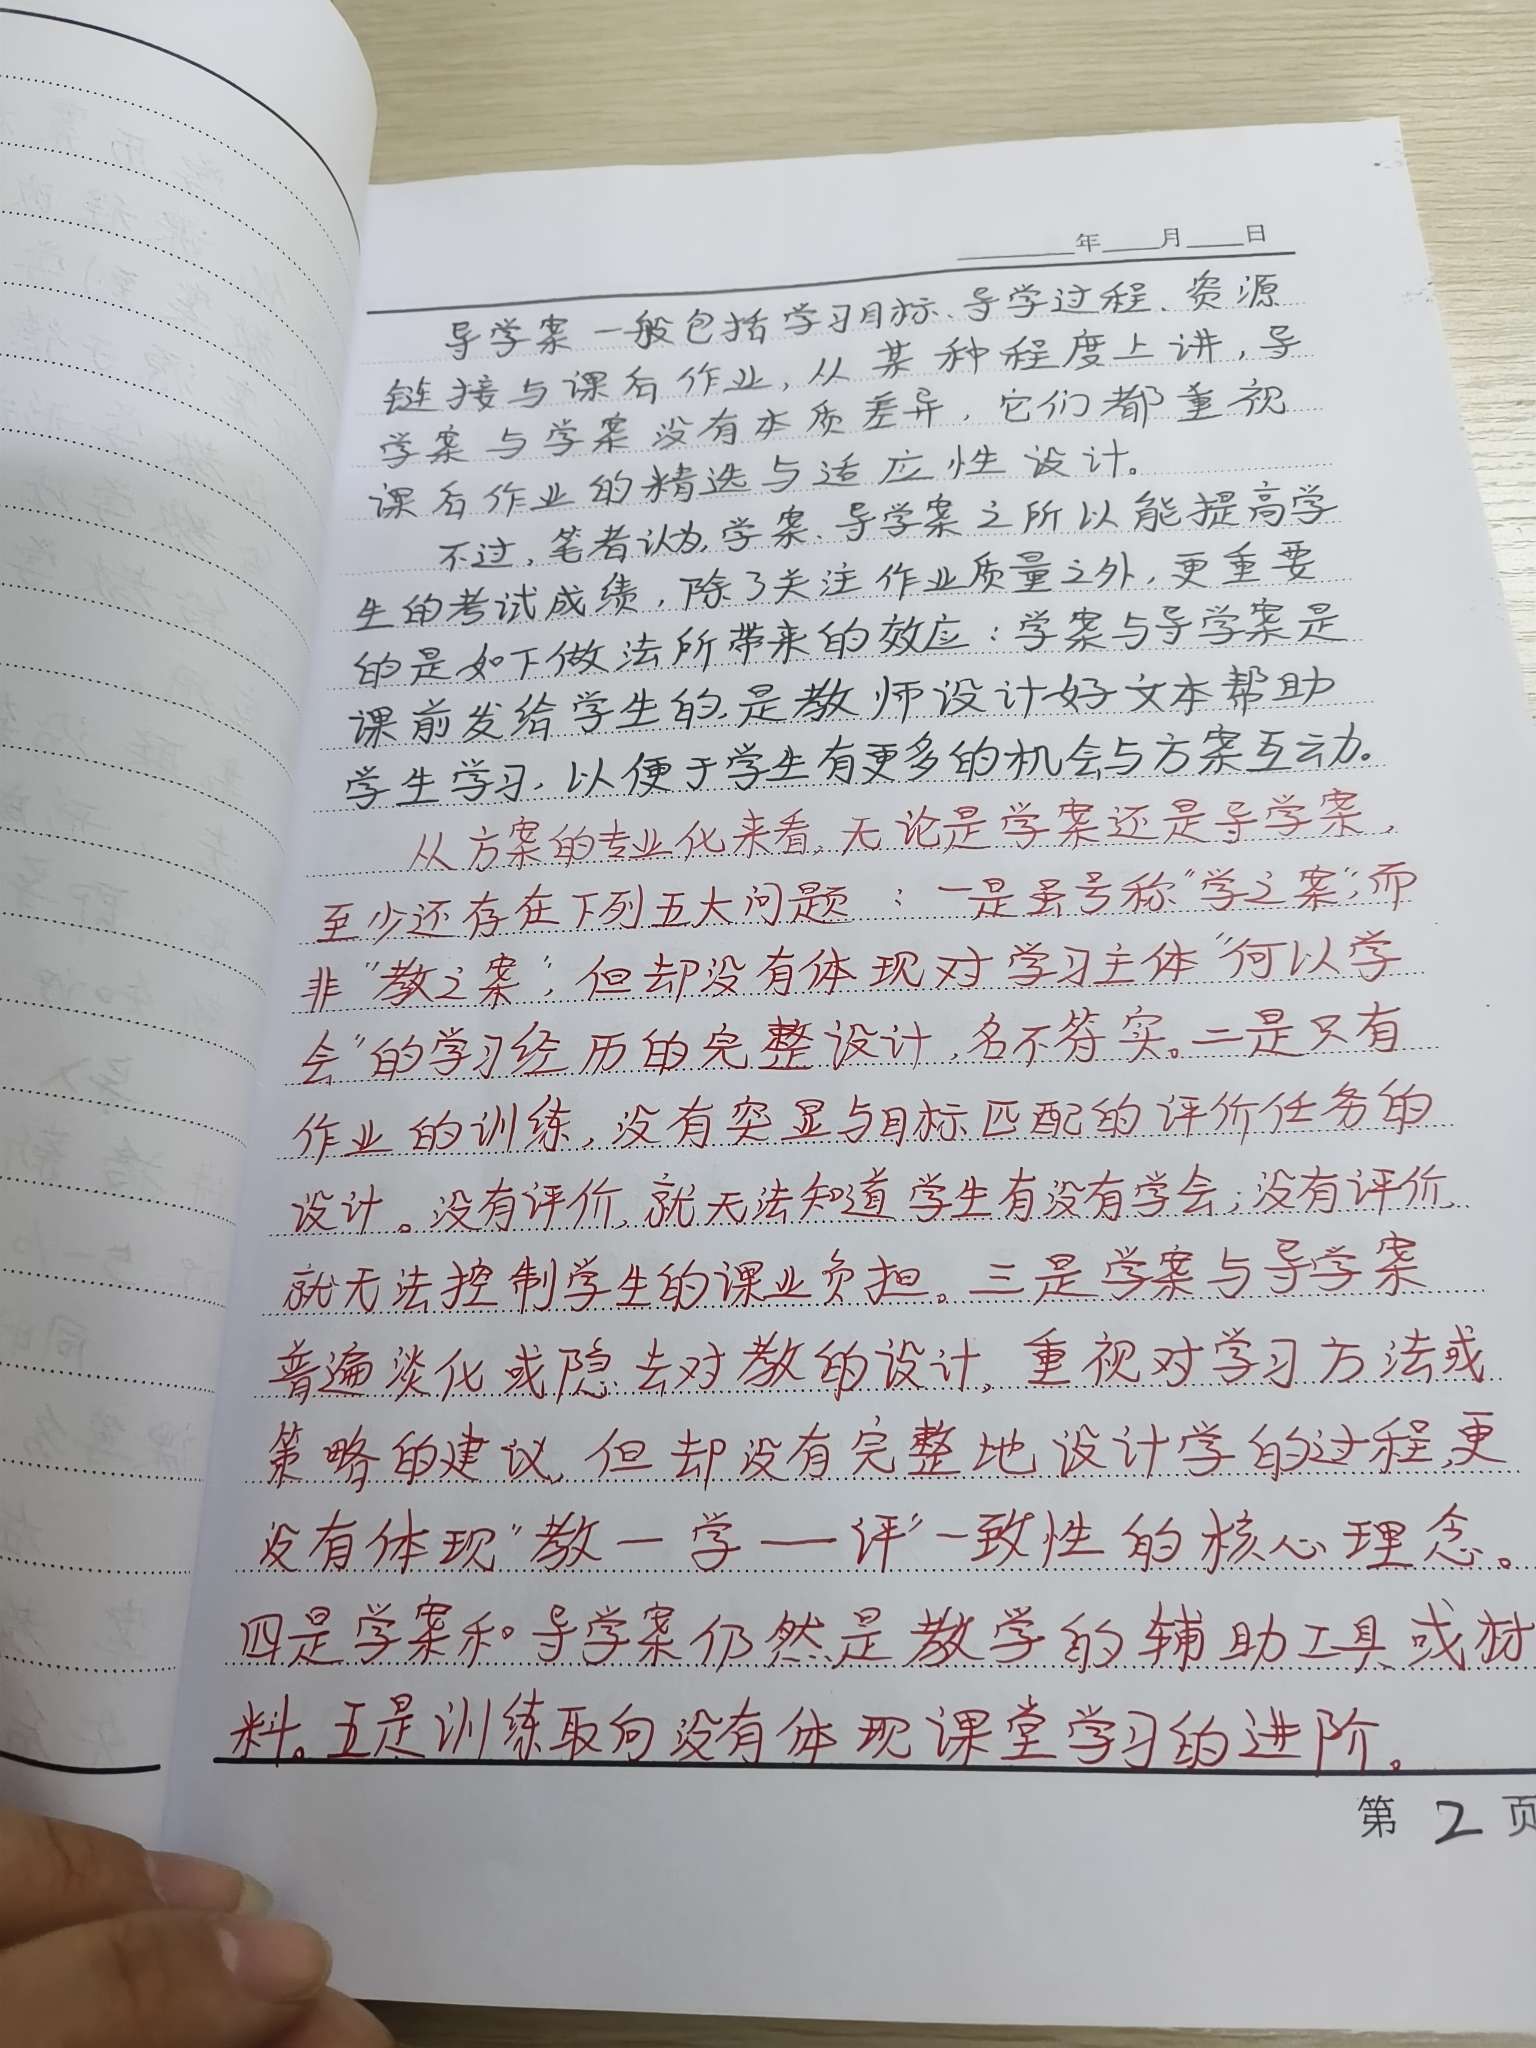 年 月 日
导学案一般包括学习目标、导学过程、资源
链接与课后作业，从某种程度上讲，导
学案与学案没有本质差异，它们都重视
课后作业的精选与适应性设计。
不过，笔者认为，学案、导学案之所以能提高学
生的考试成绩，除了关注作业质量之外，更重要
的是如下做法所带来的效应：学案与导学案是
课前发给学生的，是教师设计好文本帮助
学生学习，以便于学生有更多的机会与方案互动。
从方案的专业化来看，无论是学案还是导学案，
至少还存在下列五大问题：一是虽号称“学之案”，而
非“教之案”，但却没有体现对学习主体“何以学
会”的学习经历的完整设计，名不符实。二是只有
作业的训练，没有突显与目标匹配的评价任务的
设计。没有评价，就无法知道学生有没有学会；没有评价，
就无法控制学生的课业负担。三是学案与导学案
普遍淡化或隐去对教的设计，重视对学习方法或
策略的建议，但却没有完整地设计学的过程，更
没有体现“教—学—评”一致性的核心理念。
四是学案和导学案仍然是教学的辅助工具或材
料。五是训练取向没有体现课堂学习的进阶。
第 2 页